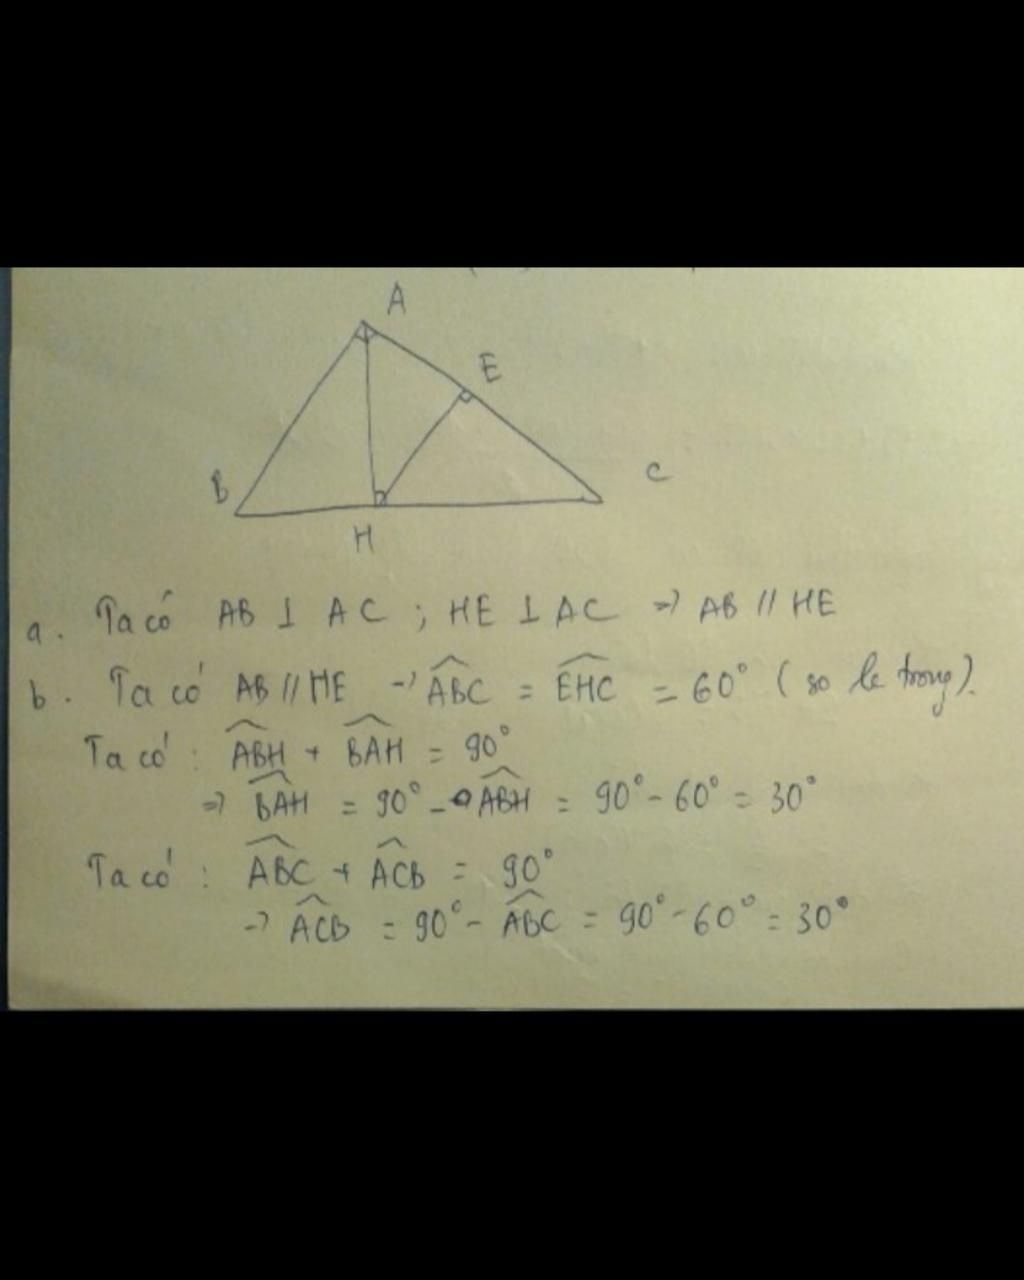 A
E
B
C
H
a. Ta có AB ⊥ AC ; HE ⊥ AC => AB // HE
b. Ta có AB // HE -> \widehat{ABC} = \widehat{EHC} = 60° (so le trong).
Ta có : \widehat{ABH} + \widehat{BAH} = 90°
=> \widehat{BAH} = 90° - \widehat{ABH} = 90° - 60° = 30°
Ta có : \widehat{ABC} + \widehat{ACB} = 90°
-> \widehat{ACB} = 90° - \widehat{ABC} = 90° - 60° = 30°